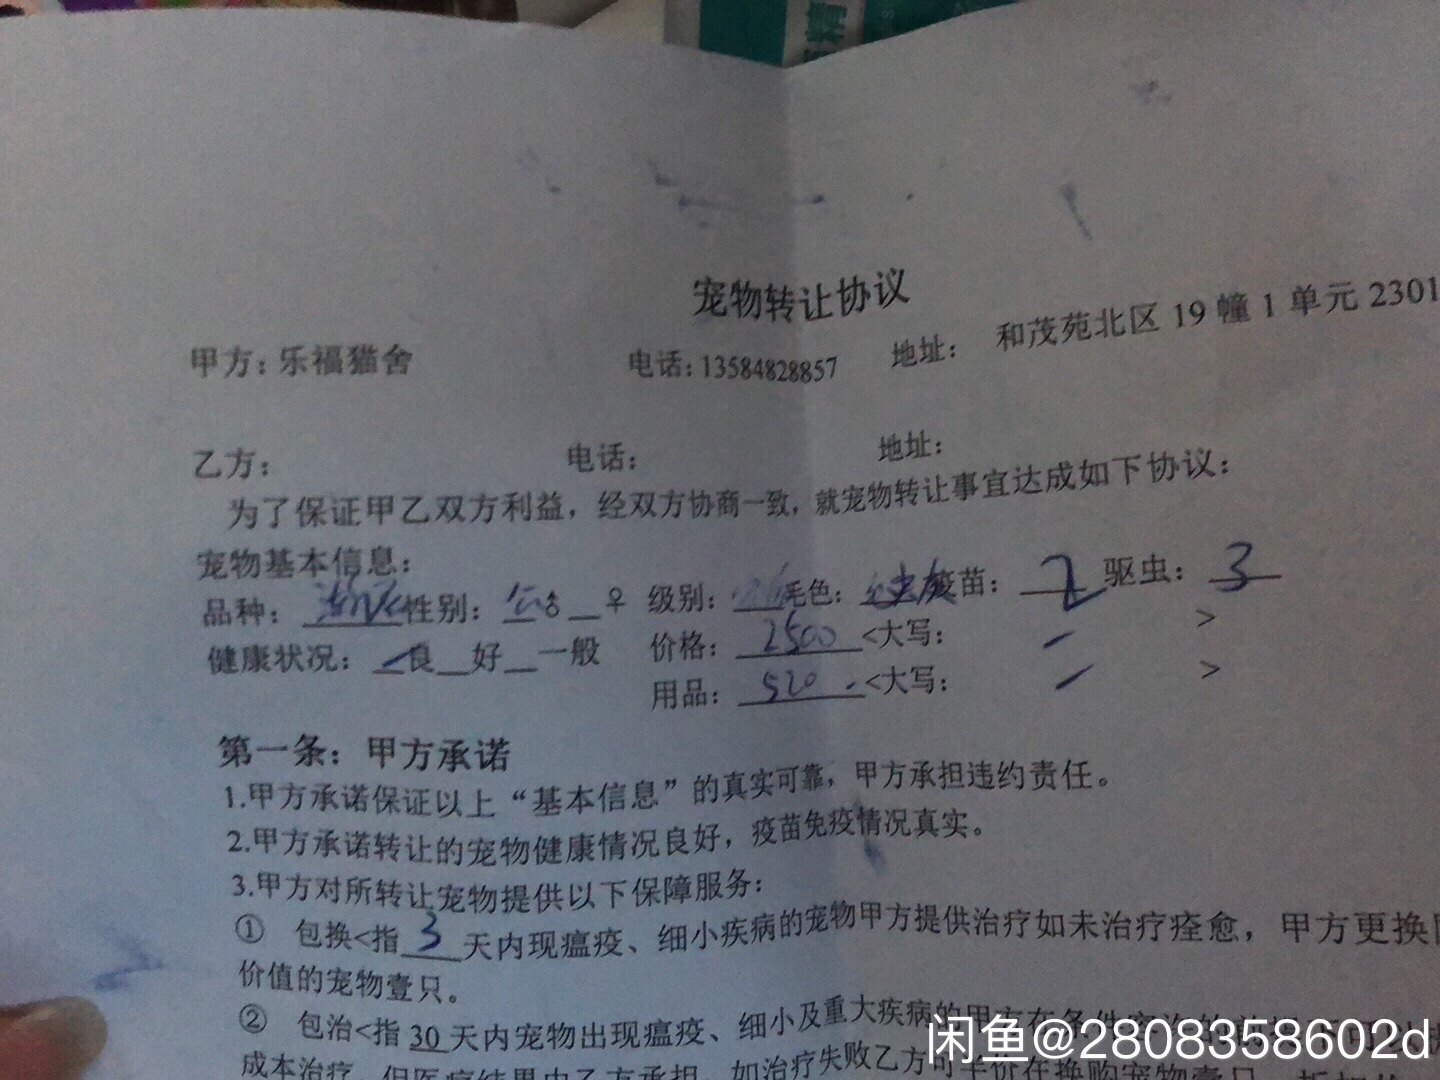 宠物转让协议
甲方：乐福猫舍 电话：13584828857 地址： 和茂苑北区 19 幢 1 单元 2301
乙方： 电话： 地址：
为了保证甲乙双方利益，经双方协商一致，就宠物转让事宜达成如下协议：
宠物基本信息：
品种： 性别： 公♂ ♀ 级别： 毛色： 疫苗： 2 驱虫： 3
健康状况： 良 好 一般 价格： 2500 <大写： >
用品： 520 <大写： >
第一条：甲方承诺
1.甲方承诺保证以上“基本信息”的真实可靠，甲方承担违约责任。
2.甲方承诺转让的宠物健康情况良好，疫苗免疫情况真实。
3.甲方对所转让宠物提供以下保障服务：
① 包换<指 3 天内现瘟疫、细小疾病的宠物甲方提供治疗如未治疗痊愈，甲方更换
价值的宠物壹只。
② 包治<指 30 天内宠物出现瘟疫、细小及重大疾病的甲方在条件
成本治疗，但医疗结果由乙方承担，如治疗失败乙方可半价在换购宠物壹只
闲鱼@2808358602d